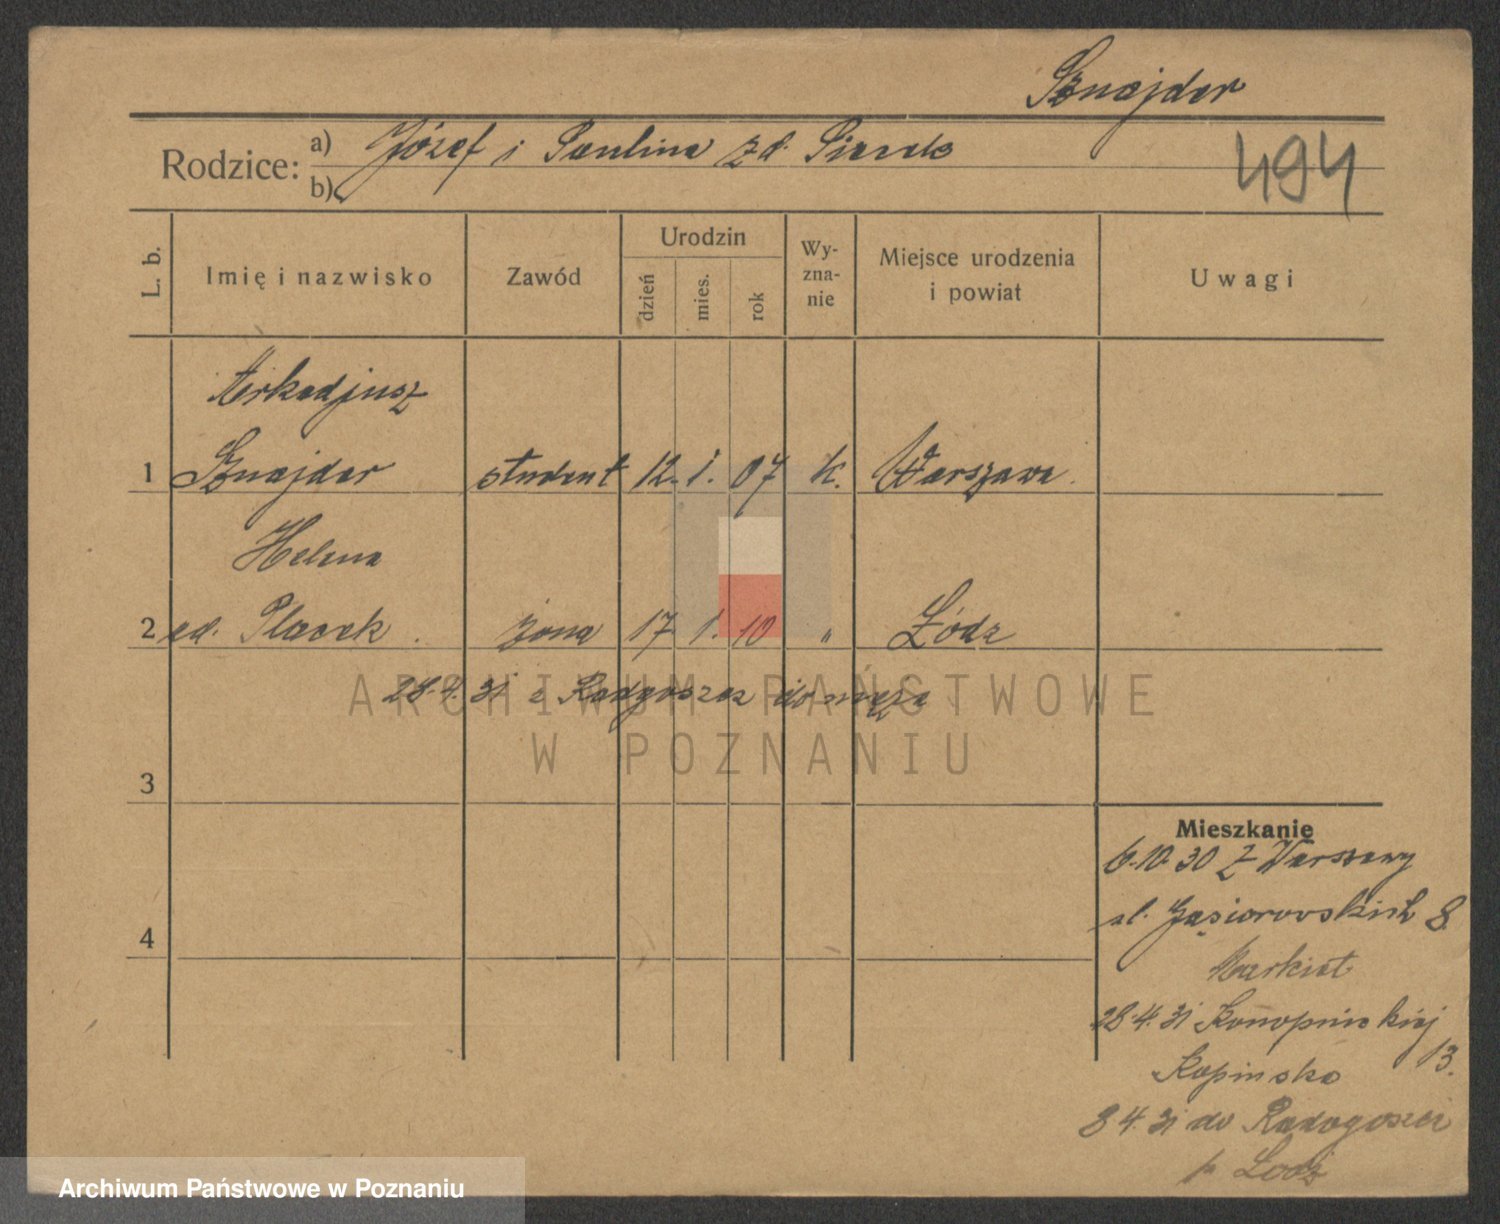 Sznajder
494
Rodzice: a) Józef i Paulina zd. Siarek
b)
L. b.
Imię i nazwisko
Zawód
Urodzin
dzień
mies.
rok
Wy-
zna-
nie
Miejsce urodzenia
i powiat
Uwagi
Arkadjusz
1 Sznajder student 12. 1. 07 k. Warszawa.
Helena
2 zd. Placek. żona 17. 1. 10 " Łódz
28.4.31 z Radgoszcz do męża
3
4
Mieszkanie
6.10.30 z Warszawy
ul. Gąsiorowskich 8.
28.4.31 Konopnickiej
13.
Kopinska
8 4.31 do Radogoszcz
p. Lodz
ARCHIWUM PAŃSTWOWE
W POZNANIU
Archiwum Państwowe w Poznaniu